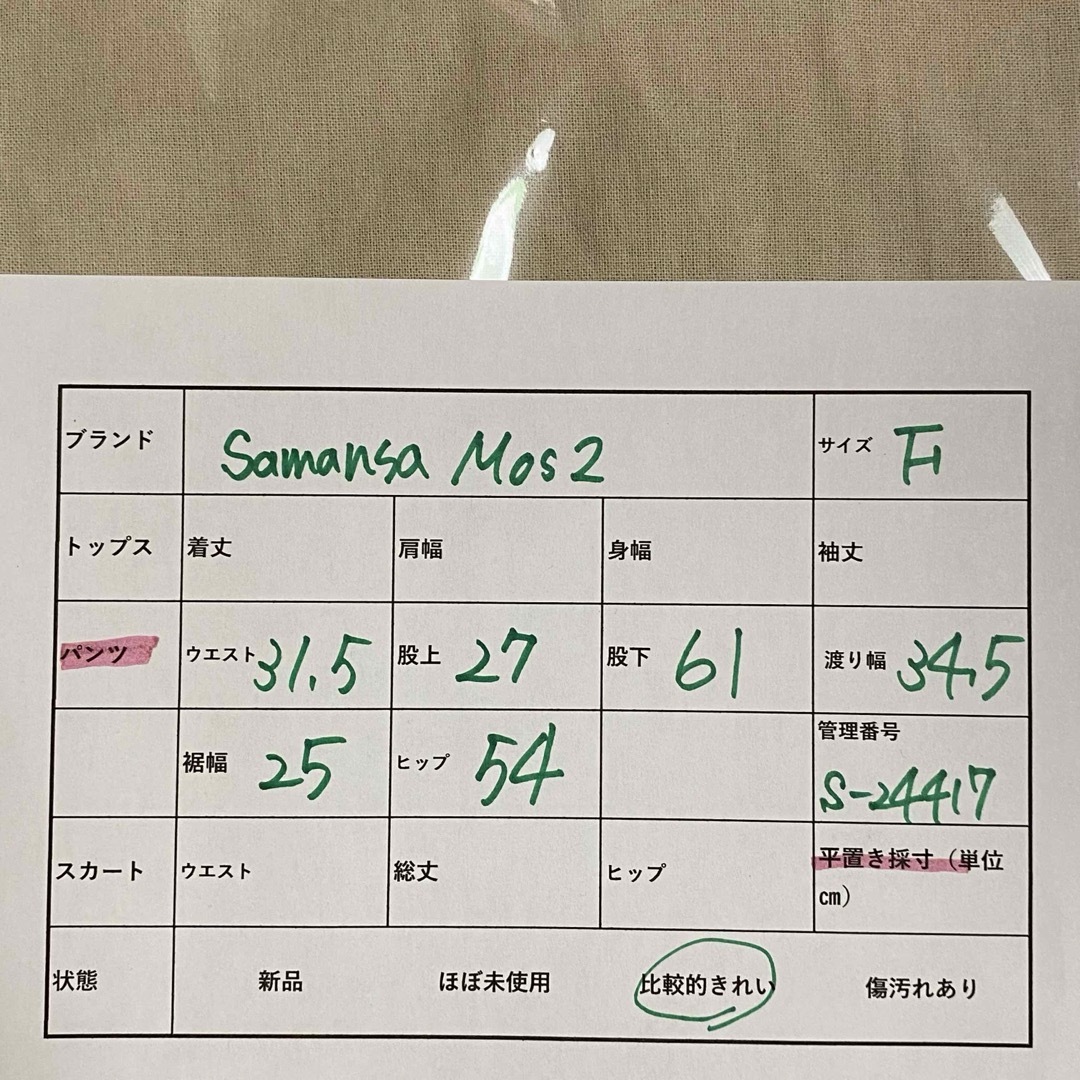 ブランド Samansa Mos2 サイズ F
トップス 着丈 肩幅 身幅 袖丈
パンツ ウエスト 31.5 股上 27 股下 61 渡り幅 34.5
裾幅 25 ヒップ 54 管理番号
S-24417
スカート ウエスト 総丈 ヒップ 平置き採寸（単位
㎝）
状態 新品 ほぼ未使用 比較的きれい 傷汚れあり